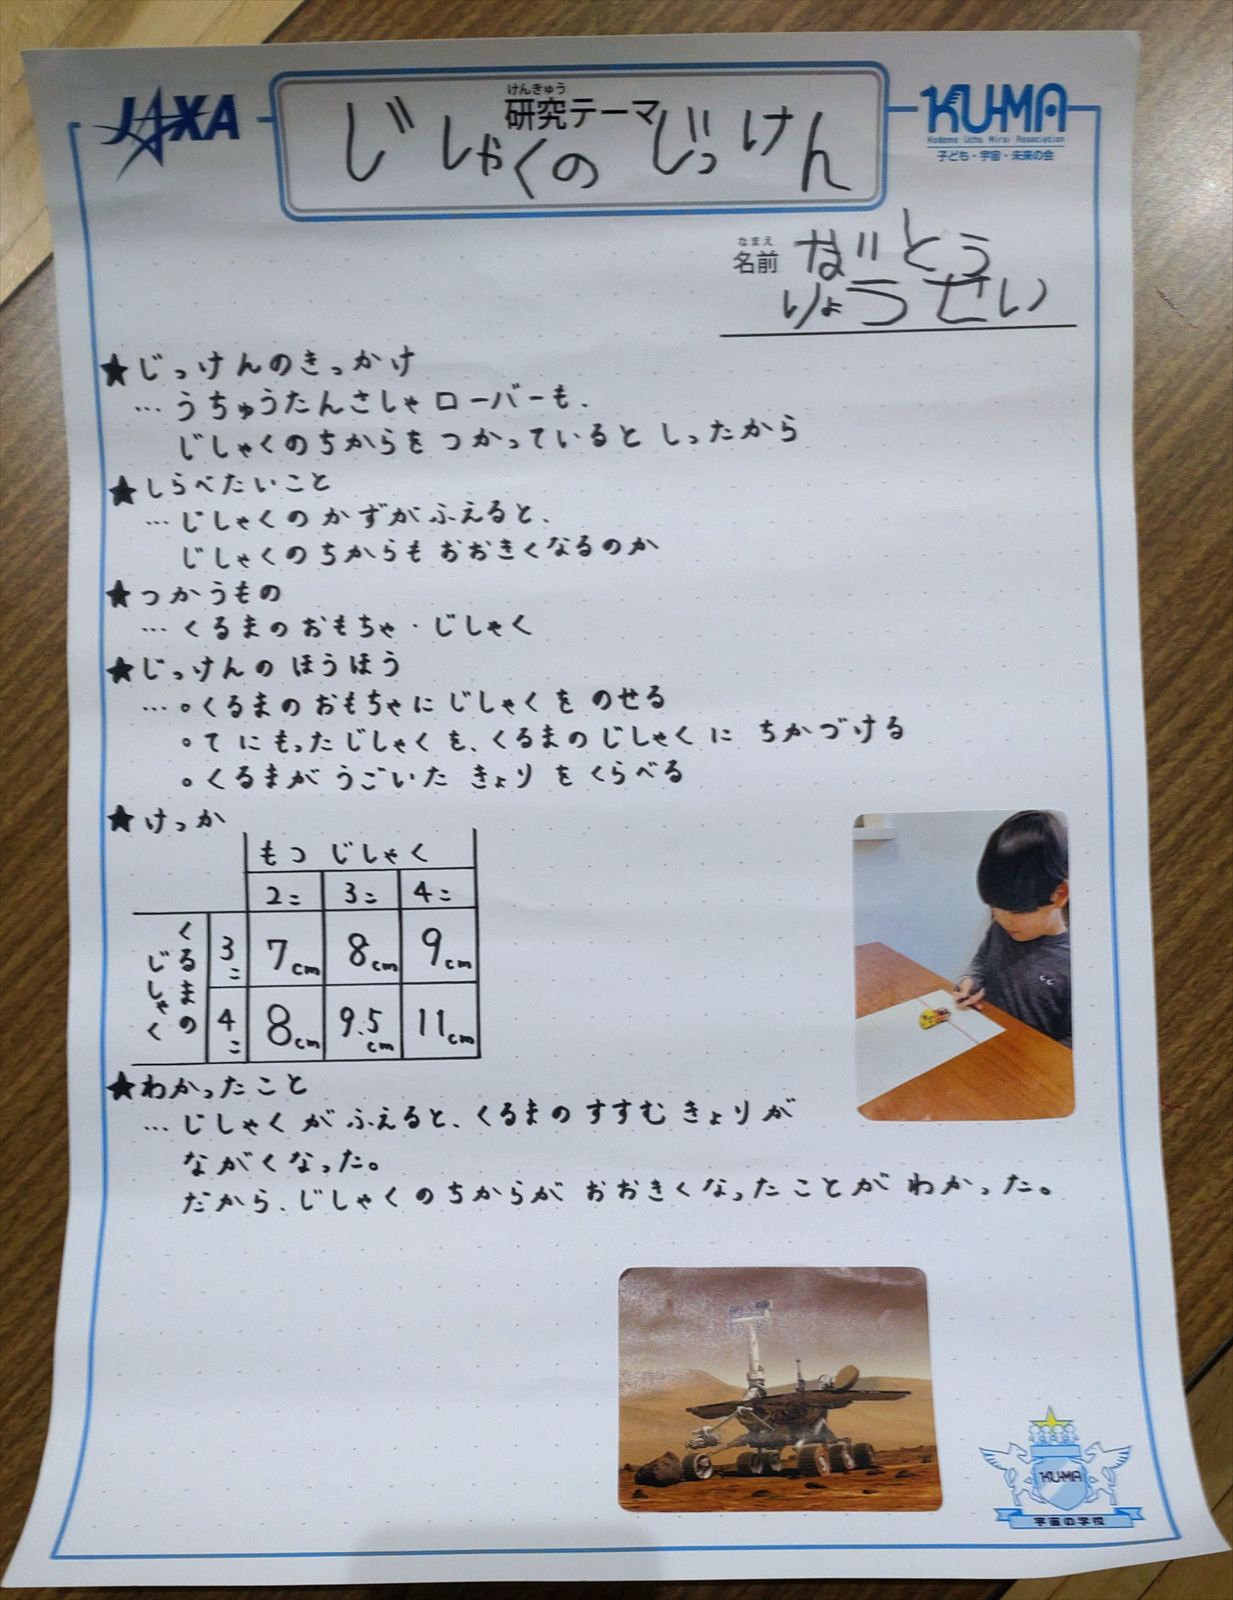 JAXA
けんきゅう
研究テーマ
じしゃくのじっけん
KU-MA
Kodomo Uchu Mirai Association
子ども・宇宙・未来の会
なまえ
名前
ないとう
りょうせい
★じっけんのきっかけ
…うちゅうたんさしゃローバーも、
じしゃくのちからをつかっているとしったから
★しらべたいこと
…じしゃくのかずがふえると、
じしゃくのちからもおおきくなるのか
★つかうもの
…くるまのおもちゃ・じしゃく
★じっけんのほうほう
…○くるまのおもちゃにじしゃくをのせる
○てにもったじしゃくを、くるまのじしゃくにちかづける
○くるまがうごいたきょりをくらべる
★けっか
もつじしゃく
2こ 3こ 4こ
くるまの
じしゃく
3こ 7cm 8cm 9cm
4こ 8cm 9.5cm 11cm
★わかったこと
…じしゃくがふえると、くるまのすすむきょりが
ながくなった。
だから、じしゃくのちからがおおきくなったことがわかった。
KU-MA
宇宙の学校